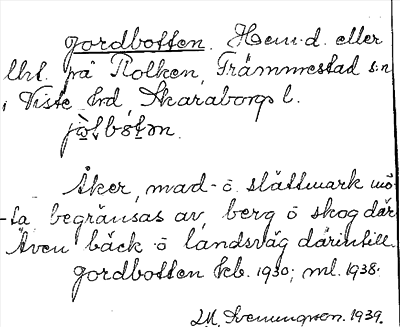 Jordbotten. Hem.d. eller
lht. på Rolken, Främmestad s:n
, Viste hrd, Skaraborgs l.
Åker, mad- o. slättmark mö-
ta begränsas av, berg o skog där
Även bäck o landsväg därintill.
Jordbotten kb. 1930; ml. 1938.
1939.